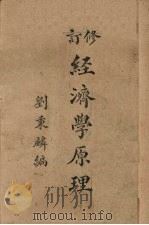 訂修
經濟學原理
劉秉麟編